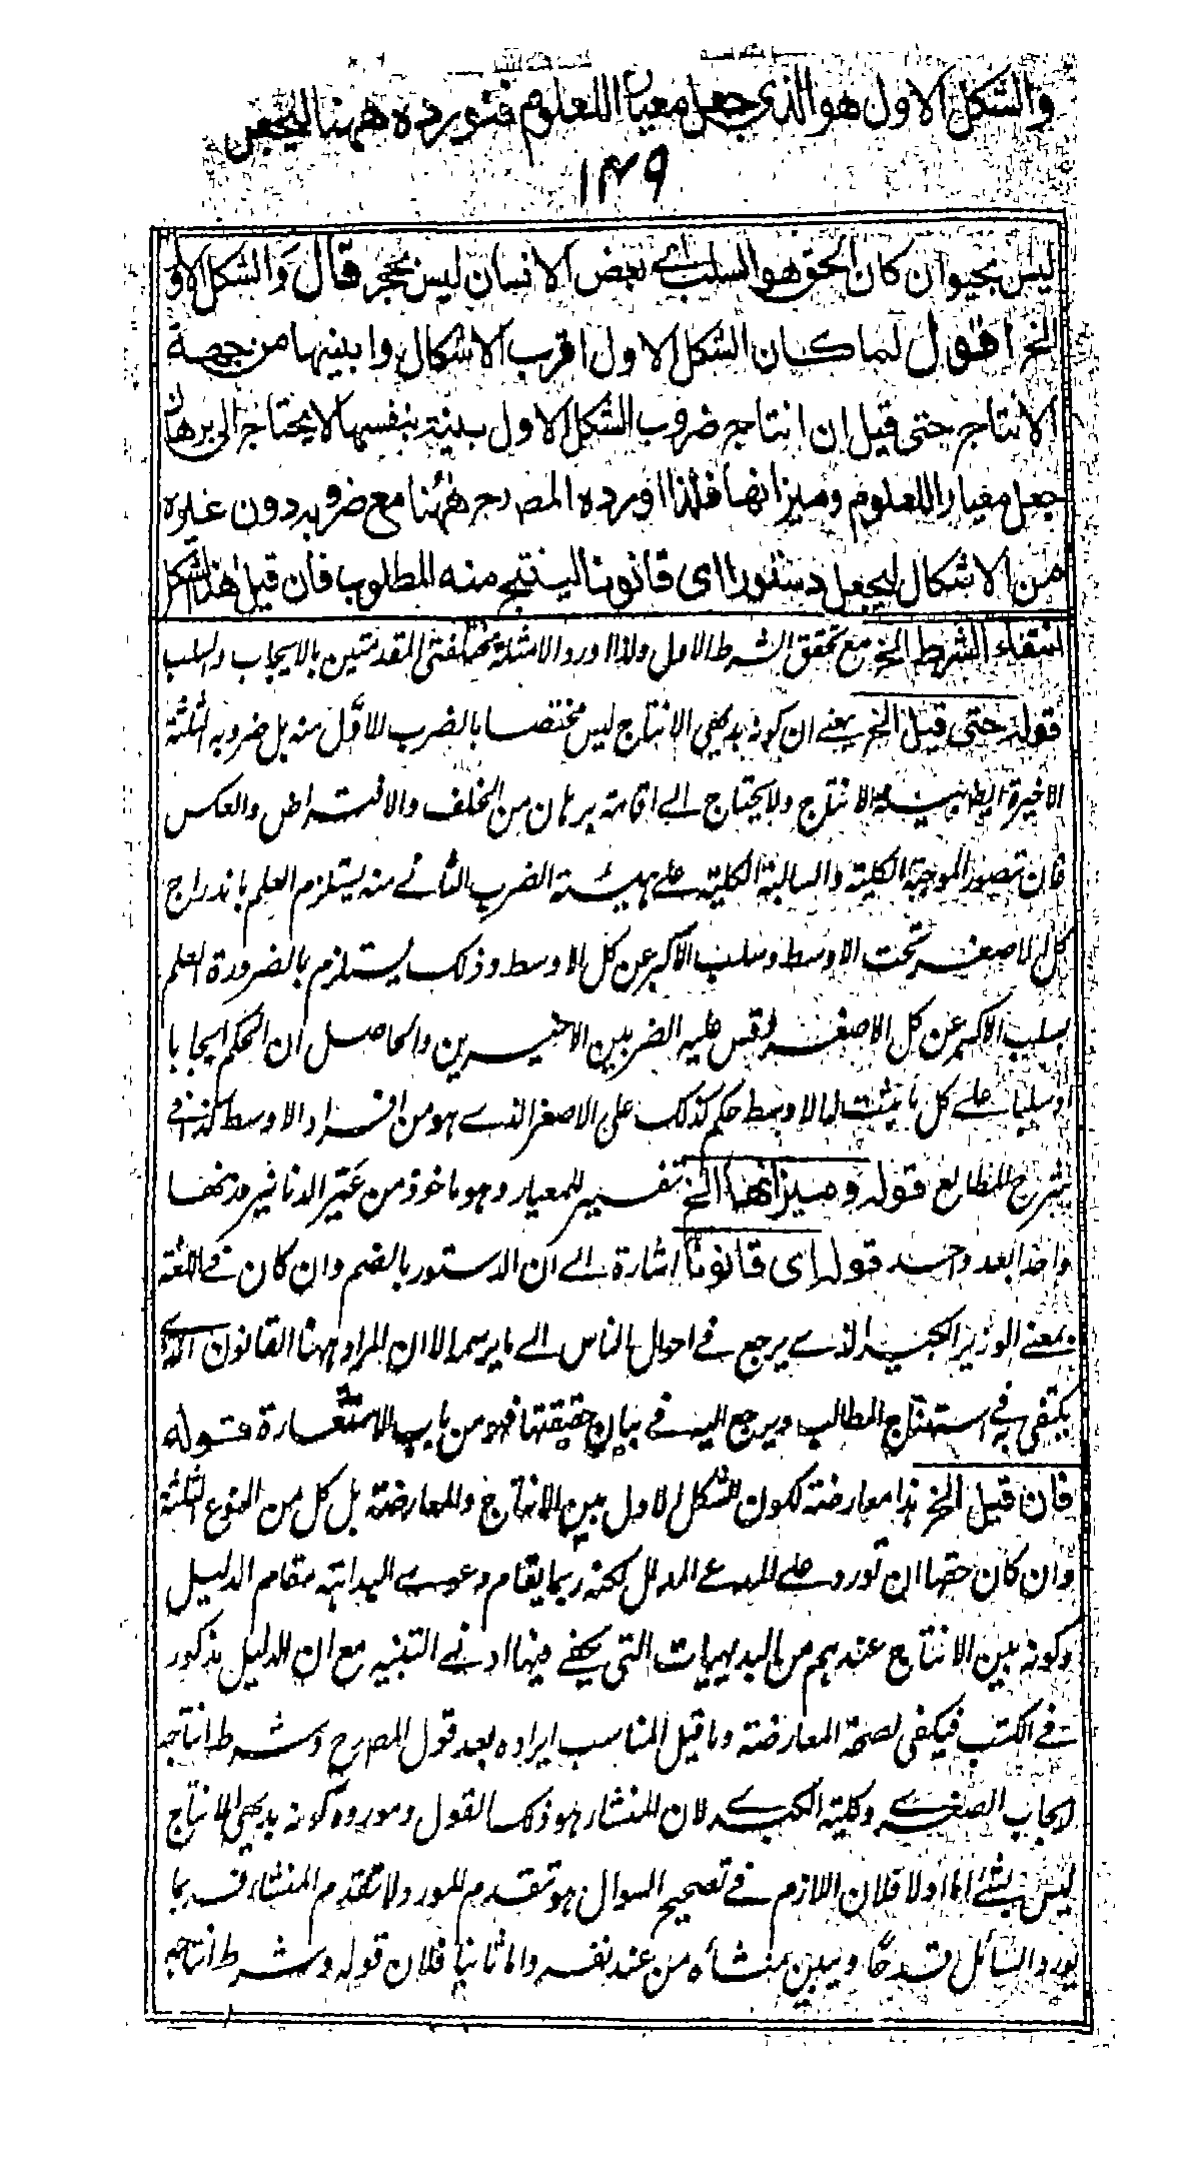 والشكل الاول هو الذى جعل معيارا للعلوم فنورده ههنا ليجعل
١٤٩
ليس بحيوان كان الحق هو السلب اے بعض الانسان ليس بحجر قال والشكل الاو
الخ اقول لما كان الشكل الاول اقرب الاشكال وابينها من جهة
الانتاج حتى قيل ان انتاج ضروب الشكل الاول بينة بنفسها لا يحتاج الى برهان
جعل معيارا للعلوم وميزانها فلذا اورده المصرح ههنا مع ضروبه دون غيره
من الاشكال ليجعل دستورا اى قانونا لينتج منه المطلوب فان قيل هذا الشكل
انتفاء الشرط الخ مع تحقق الشرط الاول ولذا اورد الامثلة مختلفتى المقدمتين بالايجاب والسلب
قوله حتى قيل الخ يعنے ان كونه بديهى الانتاج ليس مختصا بالضرب الاول منه بل ضروبه الثلثة
الاخيرة ايضا بينة الانتاج ولا يحتاج الے اقامة برهان من الخلف والافتراض والعكس
فان تصور الموجبة الكلية والسالبة الكلية علے هيئة الضرب الثانے منه يستلزم العلم باندراج
كل الاصغر تحت الاوسط وسلب الاكبر عن كل الاوسط وذلك يستلزم بالضرورة العلم
بسلب الاكبر عن كل الاصغر وقس عليه الضربين الاخيرين والحاصل ان الحكم ايجابا
او سلبا علے كل ما يثبت له الاوسط حكم كذلك على الاصغر الذے هو من افراد الاوسط كذا فے
شرح المطالع قوله وميزانها الخ تفسير للمعيار وهو ماخوذ من عير الدنانير وزنها
واحدا بعد واحد قوله اى قانونا اشارة الے ان الدستور بالضم وان كان فے اللغة
بمعنے الوزير الكبير الذے يرجع فے احوال الناس الے ما يرسمه الا ان المراد ههنا القانون الذے
يكتفى به فے استنتاج المطالب ويرجع اليه فے بيان حقيقتها فهو من باب الاستعارة قوله
فان قيل الخ هذا معارضة لكون الشكل الاول بين الانتاج والمعارضة بل كل من المنوع الثلثة
وان كان حقها ان تورد علے المدعے المدلل لكنه ربما يقام دعوے البداهة مقام الدليل
وكونه بين الانتاج عندهم من البديهيات التى يكفے فيها ادنے التنبيه مع ان الدليل مذكور
فے الكتب فيكفى لصحة المعارضة وما قيل المناسب ايراده بعد قول المصرح وشرط انتاجه
ايجاب الصغرے وكلية الكبرے لان المنشاء هو ذلك القول ومورده كونه بديهى الانتاج
ليس بشئ اما اولا فلان اللازم فے تصحيح السوال هو تقدم المورد لا تقدم المنشاء فربما
يورد السائل قدحا ويبين منشأه من عند نفسه واما ثانيا فلان قوله وشرط انتاجه